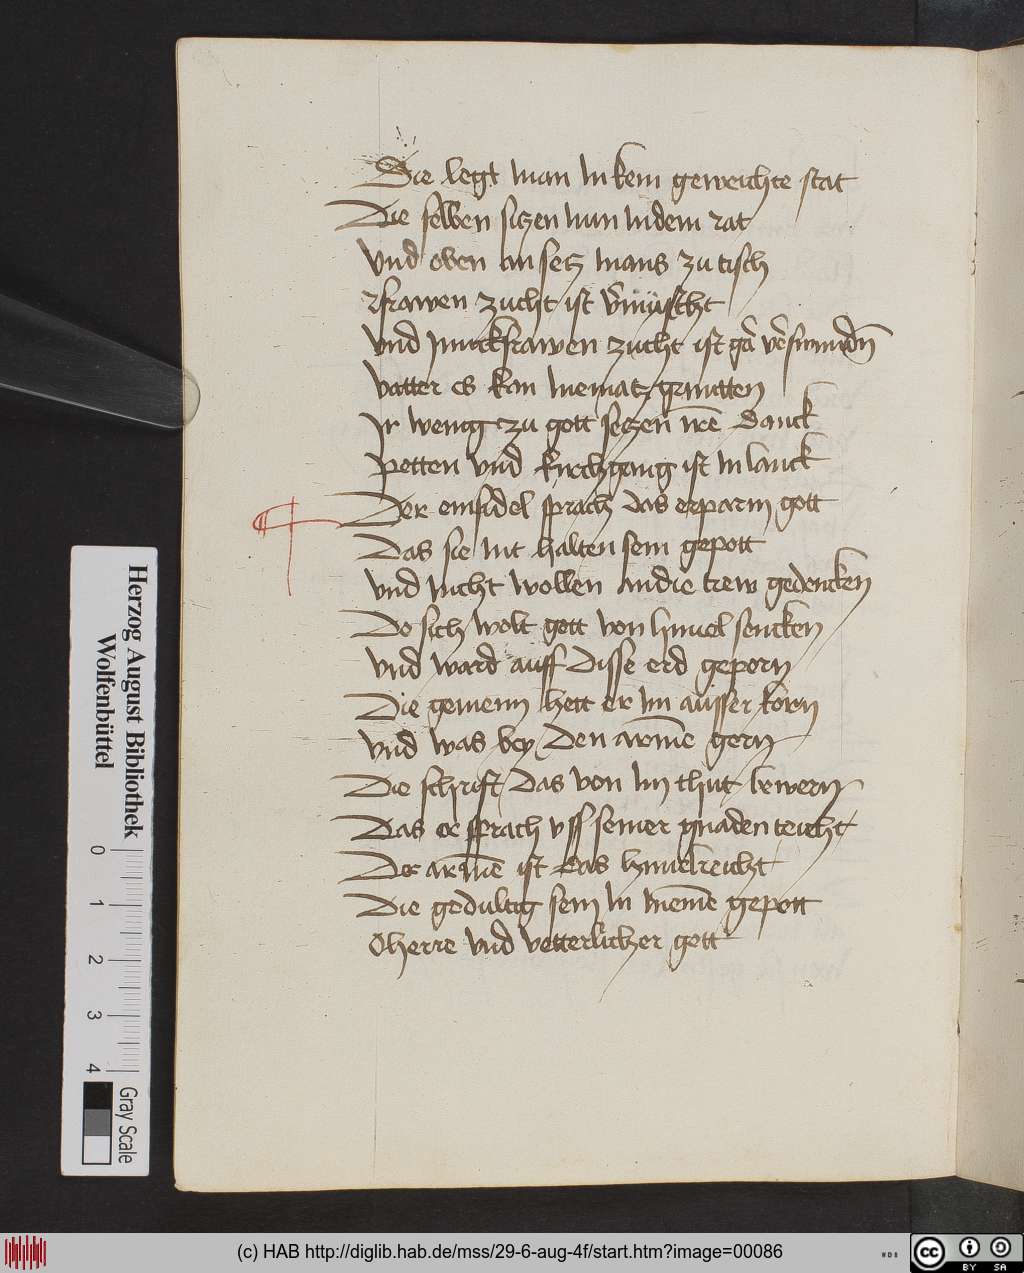 Die legt man In kein geweichte stat
Die selben siczen nun In dem rat
Vnd oben an secz mans zu tisch
frawen zucht ist v̄müscht
Vnd Junckfrawen zucht ist gar versumndn̄
Vatter es kan niemantz
Ir wenig zu gott seczen iren̄ danck
Petten vnd kirchgang ist In lanck
Der einsidel sprach das erparm gott
Das sie nit halten sein gepott
Vnd nicht wollen an die trew gedencken
Do sich wolt gott von himel sencken
Vnd ward auff Disse erd geporn
Die gemein hett er Im ausser korn
Vnd was bey Den armē gern
Die schrift Das von Im thut bewern
Das er sprach vss seiner gnaden teicht
Der armē ist das himelreicht
Die gedultig sein In meinē gepott
O herre vnd vetterlicher gott
Herzog August Bibliothek
Wolfenbüttel
0 1 2 3 4
Gray Scale
(c) HAB http://diglib.hab.de/mss/29-6-aug-4f/start.htm?image=00086
WDB
cc BY SA